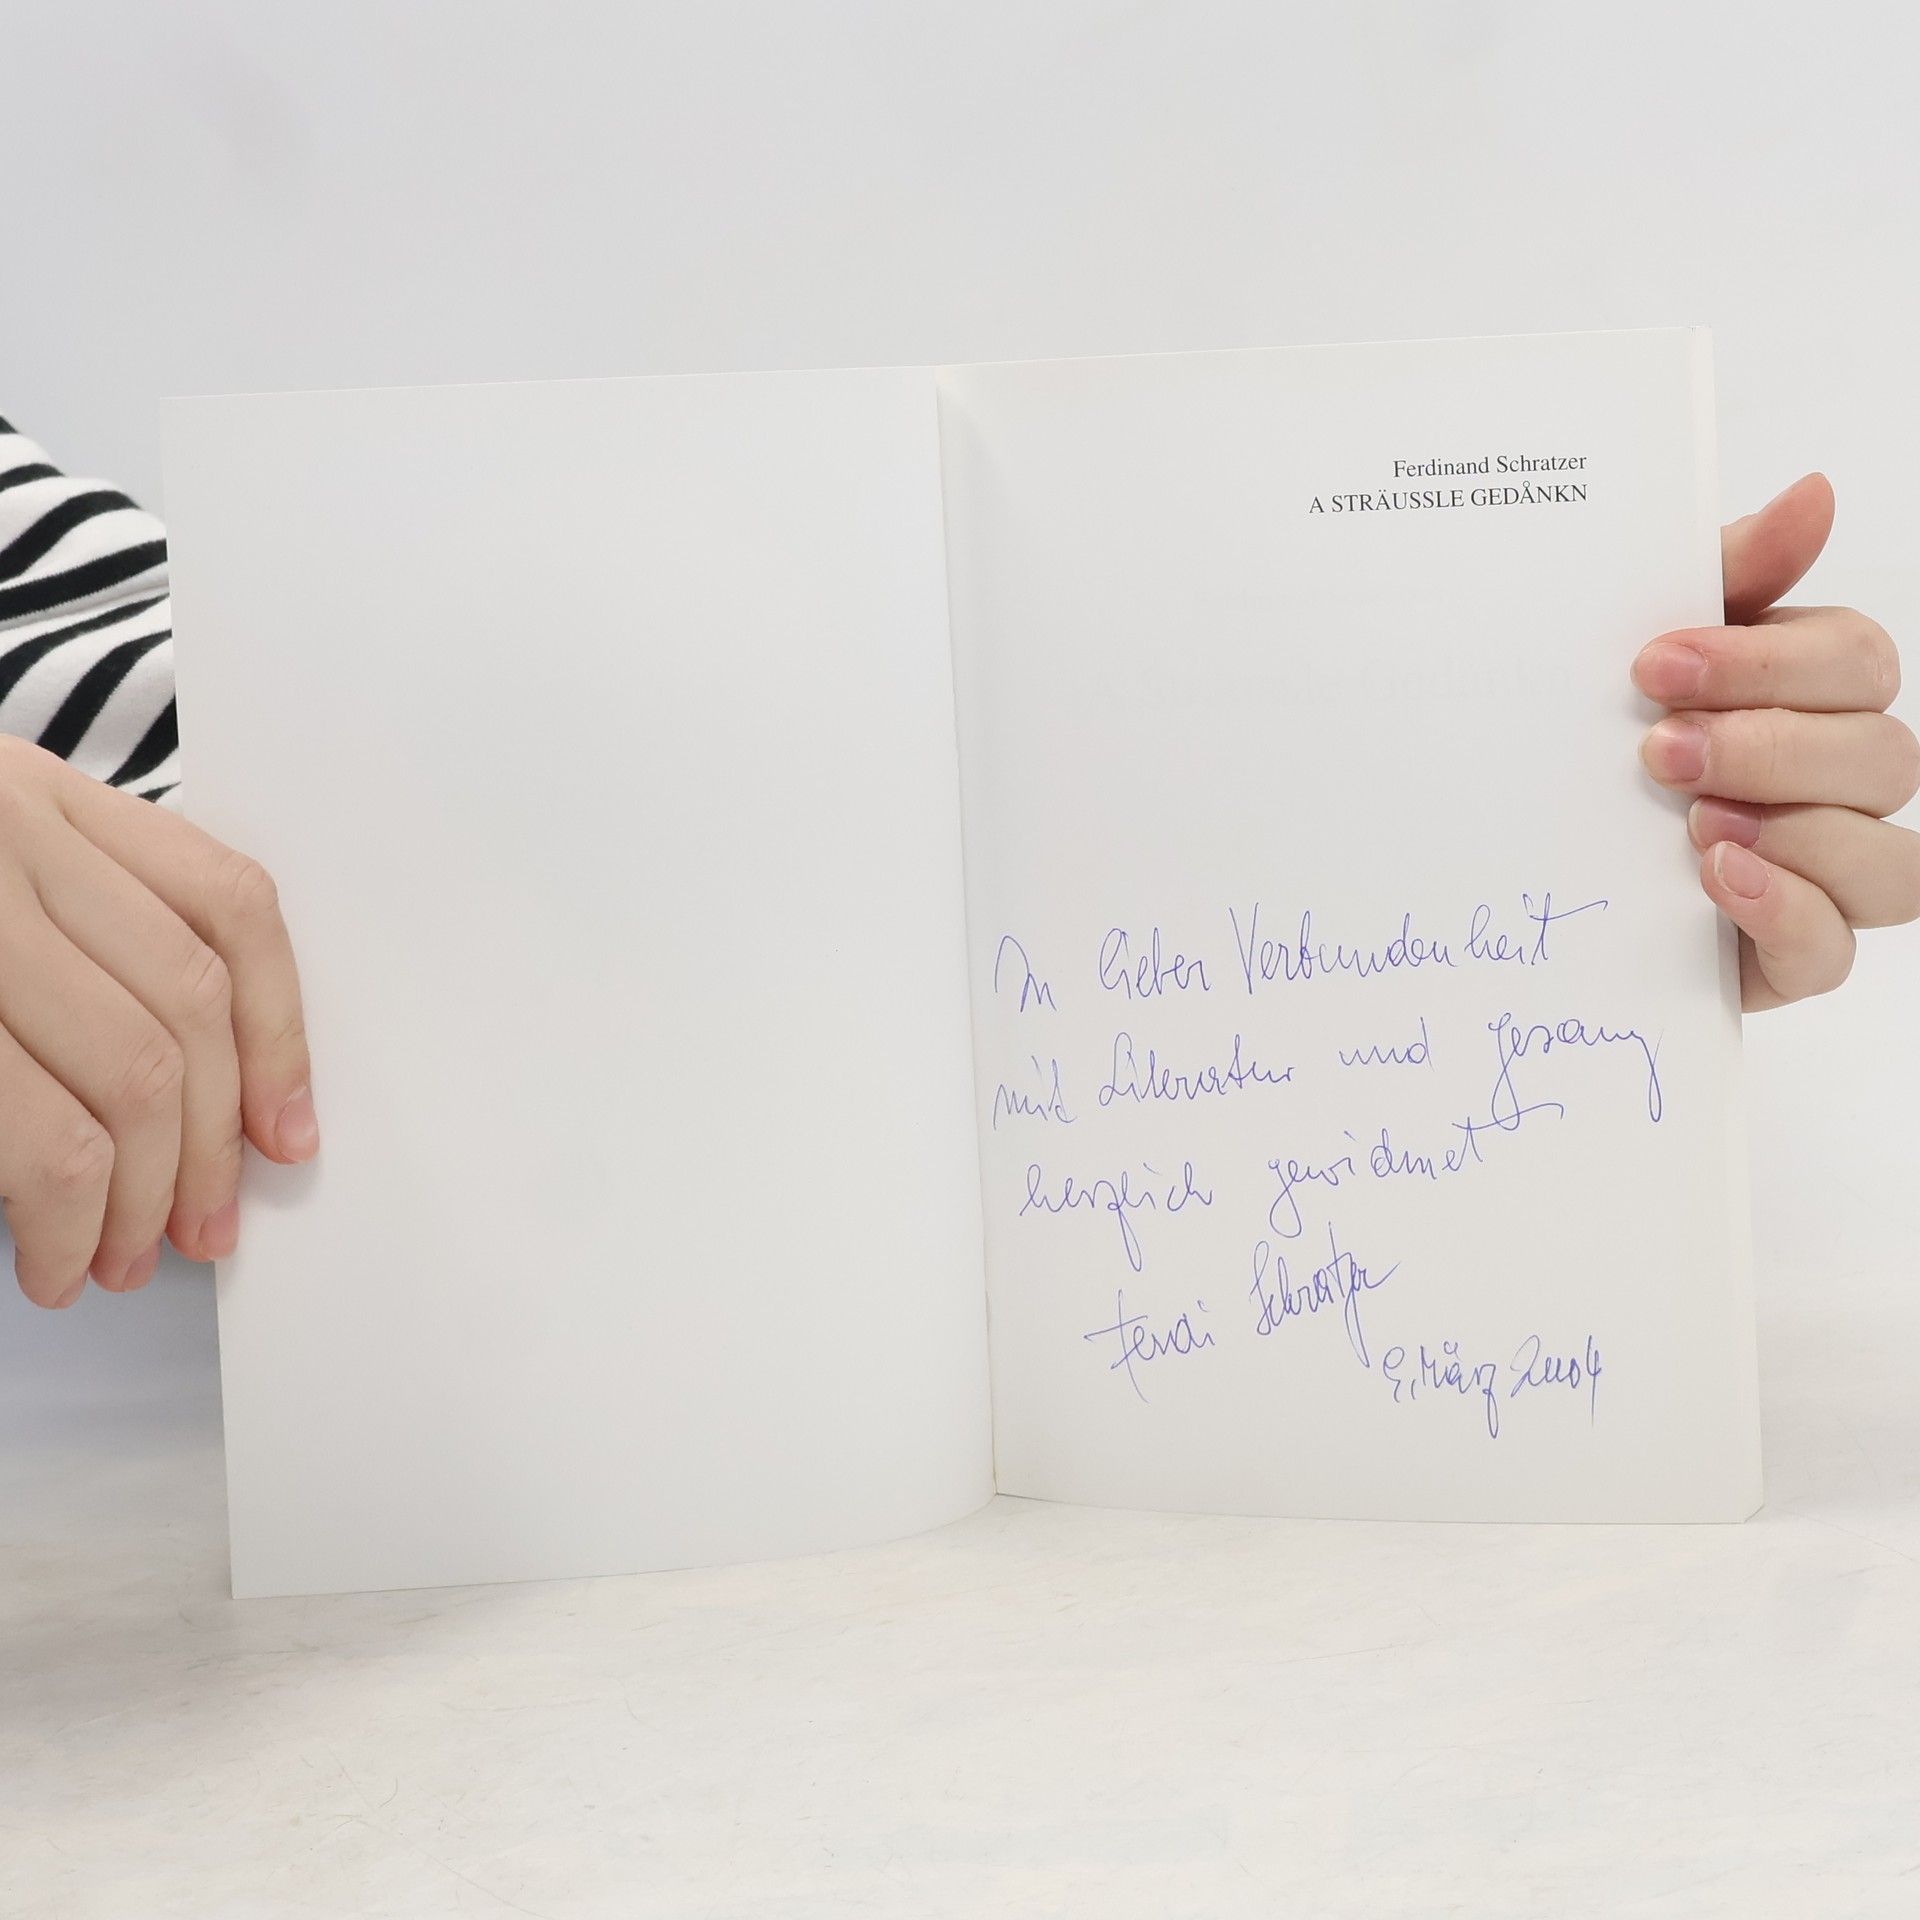 Ferdinand Schratzer
A STRÄUSSLE GEDÅNKN
In lieber Verbundenheit
mit Literatur und Gesang
herzlich gewidmet
Ferdi Schratzer
März 2004